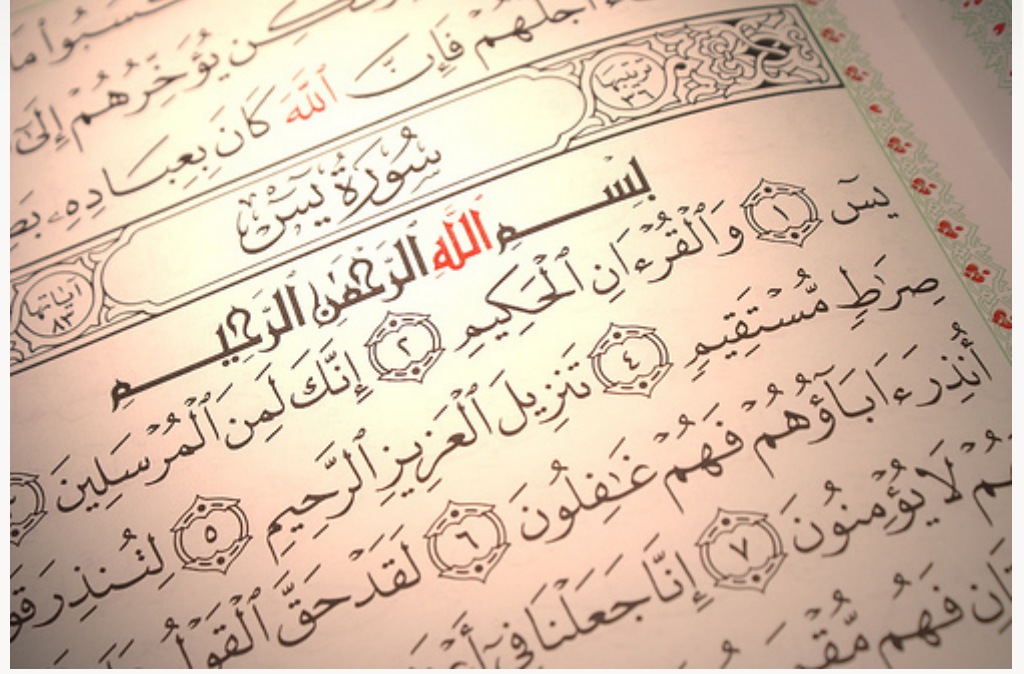 مَا
يُؤَخِّرُهُمْ إِلَىٰٓ
أَجَلُهُمْ فَإِنَّ ٱللَّهَ كَانَ بِعِبَادِهِۦ بَصِ
ترتيبها ٣٦ سُورَةُ يسٓ آياتها ٨٣
بِسْمِ ٱللَّهِ ٱلرَّحْمَٰنِ ٱلرَّحِيمِ
يسٓ ١ وَٱلْقُرْءَانِ ٱلْحَكِيمِ ٢ إِنَّكَ لَمِنَ ٱلْمُرْسَلِينَ ٣
صِرَٰطٍ مُّسْتَقِيمٍ ٤ تَنزِيلَ ٱلْعَزِيزِ ٱلرَّحِيمِ ٥ لِتُنذِرَ قَوْ
أُنذِرَ ءَابَآؤُهُمْ فَهُمْ غَٰفِلُونَ ٦ لَقَدْ حَقَّ ٱلْقَوْلُ
هُمْ لَا يُؤْمِنُونَ ٧ إِنَّا جَعَلْنَا فِىٓ أَعْ
انِ فَهُم مُّقْمَ